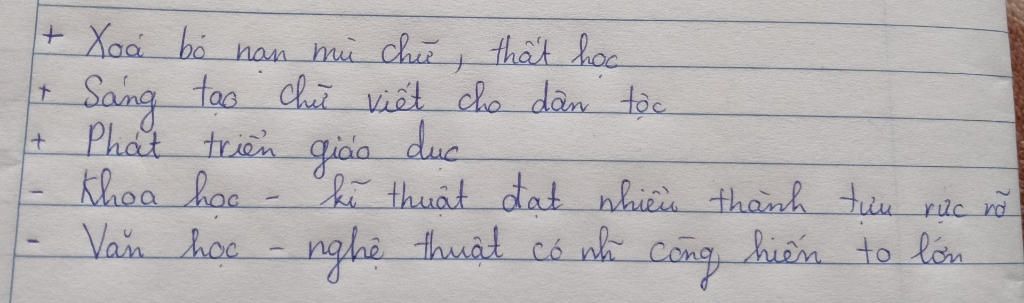 + Xoá bỏ nạn mù chữ, thất học
+ Sáng tạo chữ viết cho dân tộc
+ Phát triển giáo dục
- Khoa học - kĩ thuật đạt nhiều thành tựu rực rỡ
- Văn học - nghệ thuật có nh~ cống hiến to lớn